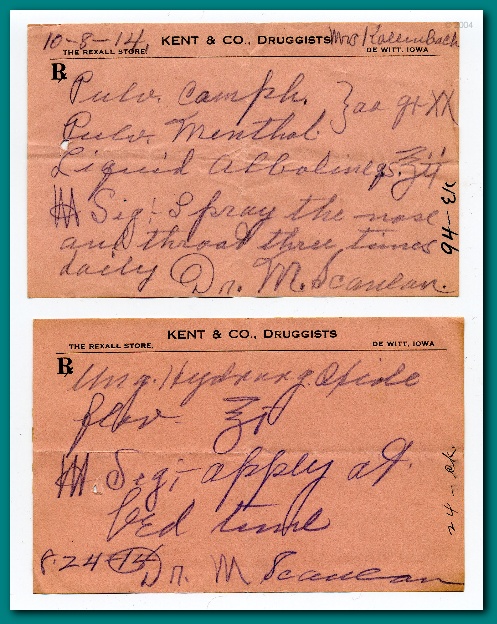 © 2004
10-8-14, KENT & CO., DRUGGISTS Mrs
THE REXALL STORE. DE WITT, IOWA
℞ Pulv. Camph.
Pulv. Menthol } aa gr XX
Liquid Alboline
M Sig:- Spray the nose
and throat three times
daily Dr. M. Scanlan.
KENT & CO., DRUGGISTS
THE REXALL STORE. DE WITT, IOWA
℞ Ung. Hydrarg Oxide
flav. ℥i
M Sig;- apply at
bed time
8-24-14 Dr. M Scanlan